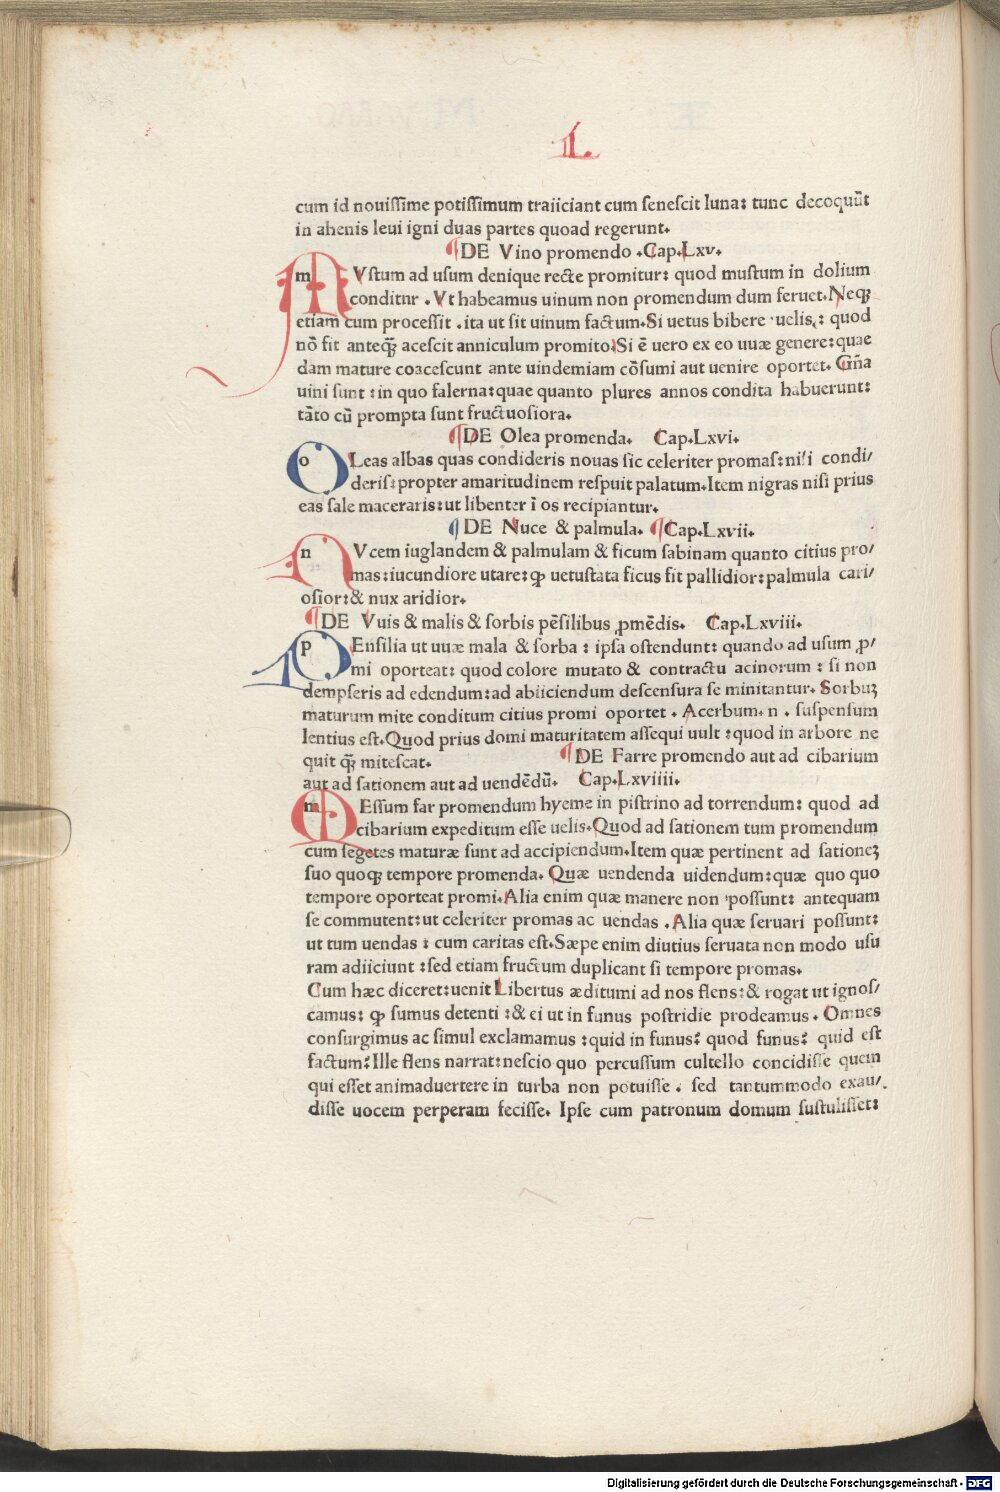 L.
cum id nouiſſime potiſſimum traiiciant cum ſeneſcit luna: tunc decoquūt
in ahenis leui igni duas partes quoad regerunt.
¶DE Vino promendo .Cap.Lxv.
m Vſtum ad uſum denique recte promitur: quod muſtum in dolium
conditnr . Vt habeamus uinum non promendum dum feruet.Neqꝫ
etiam cum proceſſit .ita ut ſit uinum factum.Si uetus bibere uelis,: quod
nō fit anteqꝫ aceſcit anniculum promito.Si ē vero ex eo uuæ genere:quae
dam mature coaceſcunt ante uindemiam cōſumi aut uenire oportet. Gn̄a
uini ſunt :in quo falerna:quae quanto plures annos condita habuerunt:
tāto cū prompta ſunt fructuoſiora.
¶DE Olea promenda. Cap.Lxvi.
o Leas albas quas condideris nouas ſic celeriter promaſ:niſi condi/
deriſ:propter amaritudinem reſpuit palatum.Item nigras niſi prius
eas ſale maceraris:ut libenter ī os recipiantur.
¶ DE Nuce & palmula. ¶Cap.Lxvii.
n Vcem iuglandem & palmulam & ficum ſabinam quanto citius pro/
mas:iucundiore utare:ꝙ uetuſtata ficus fit pallidior:palmula cari/
oſior:& nux aridior.
¶DE Vuis & malis & ſorbis pēſilibus ꝓmēdis. Cap.Lxviii.
p Enſilia ut uuæ mala & ſorba : ipſa oſtendunt: quando ad uſum ꝓ/
mi oporteat: quod colore mutato & contractu acinorum : ſi non
dempſeris ad edendum:ad abiiciendum deſcenſura ſe minitantur. Sorbuꝫ
maturum mite conditum citius promi oportet . Acerbum. n . ſuſpenſum
lentius eſt.Quod prius domi maturitatem aſſequi uult :quod in arbore ne
quit qꝫ miteſcat. ¶DE Farre promendo aut ad cibarium
aut ad ſationem aut ad uendēdū. Cap.Lxviiii.
m Eſſum far promendum hyeme in piſtrino ad torrendum: quod ad
cibarium expeditum eſſe uelis.Quod ad ſationem tum promendum
cum ſegetes maturæ ſunt ad accipiendum.Item quæ pertinent ad ſationeꝫ
ſuo quoqꝫ tempore promenda. Quæ uendenda uidendum:quæ quo quo
tempore oporteat promi.Alia enim quæ manere non poſſunt: antequam
ſe commutent:ut celeriter promas ac uendas .Alia quæ ſeruari poſſunt:
ut tum uendas : cum caritas eſt.Sæpe enim diutius ſeruata non modo uſu
ram adiiciunt :ſed etiam fructum duplicant ſi tempore promas.
Cum hæc diceret:uenit Libertus æditumi ad nos flens:& rogat ut ignoſ/
camus: ꝙ ſumus detenti :& ei ut in funus poſtridie prodeamus . Omnes
conſurgimus ac ſimul exclamamus :quid in funus? quod funus? quid eſt
factum?Ille flens narrat:neſcio quo percuſſum cultello concidiſſe quem
qui eſſet animaduertere in turba non potuiſſe . ſed tantummodo exau/
diſſe uocem perperam feciſſe. Ipſe cum patronum domum ſuſtuliſſet:
Digitalisierung gefördert durch die Deutsche Forschungsgemeinschaft - DFG